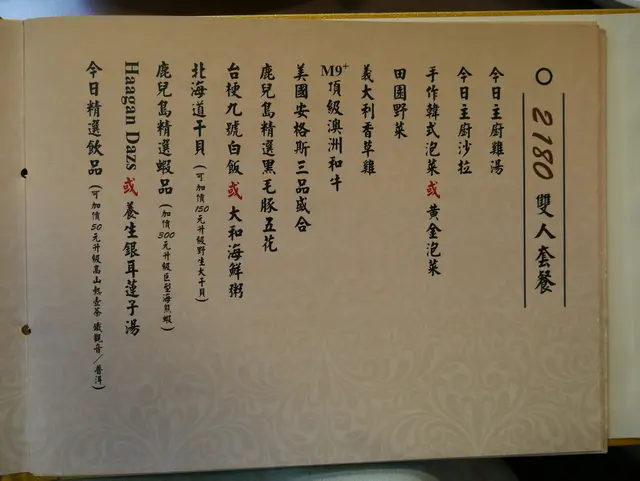 2180 雙人套餐
今日主廚雞湯
今日主廚沙拉
手作韓式泡菜或黃金泡菜
田園野菜
義大利香草雞
M9+頂級澳洲和牛
美國安格斯三品盛合
鹿兒島精選黑毛豚五花
台梗九號白飯或大和海鮮粥
北海道干貝(可加價150元升級野生大干貝)
鹿兒島精選蝦品(加價300元升級巨型海熊蝦)
Haagan Dazs或養生銀耳蓮子湯
今日精選飲品(可加價50元升級高山熱壺茶 鐵觀音/普洱)